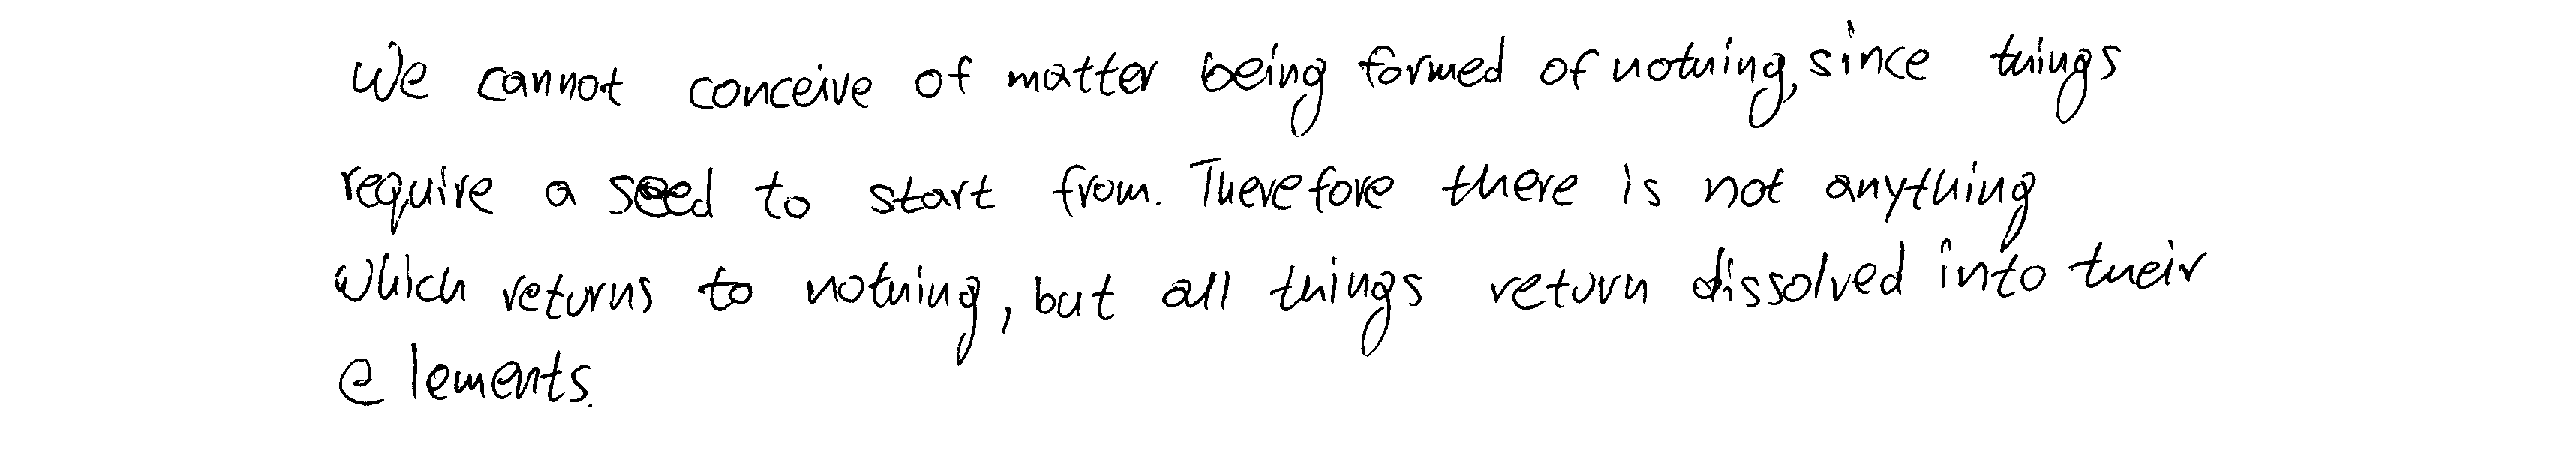 We cannot conceive of matter being formed of nothing, since things
require a seed to start from. Therefore there is not anything
which returns to nothing, but all things return dissolved into their
elements.